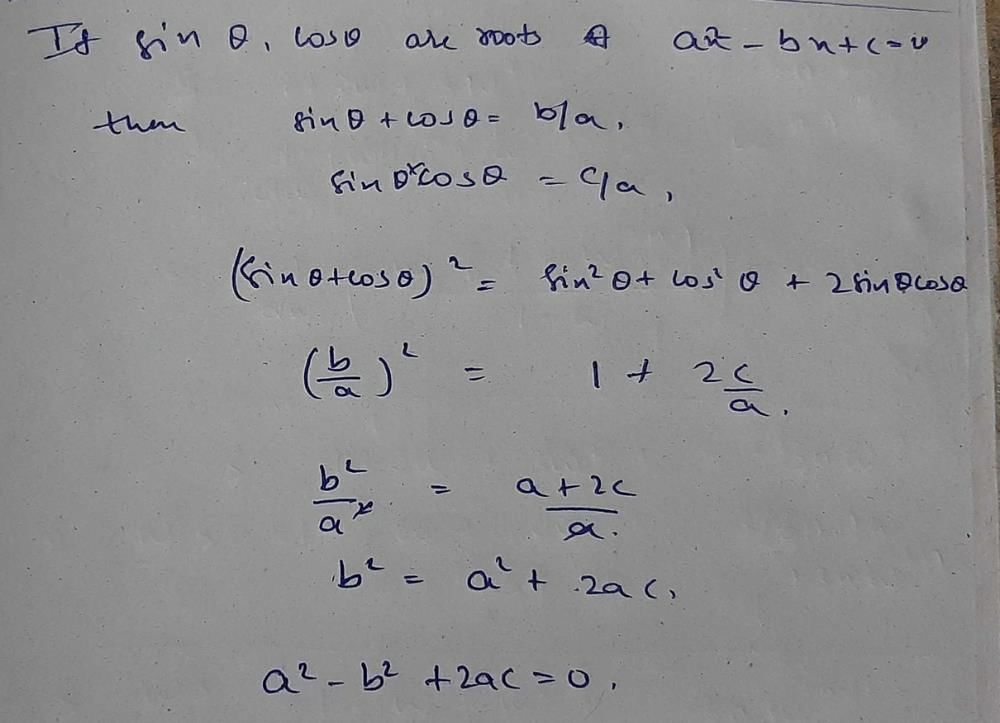 If sin θ, cosθ are roots of ax² - bx + c = 0
then sinθ + cosθ = b/a,
sin θ × cosθ = c/a,
(sinθ + cosθ)² = sin²θ + cos²θ + 2sinθcosθ
(b/a)² = 1 + 2c/a.
b²/a² = a + 2c/a.
b² = a² + 2ac,
a² - b² + 2ac = 0.